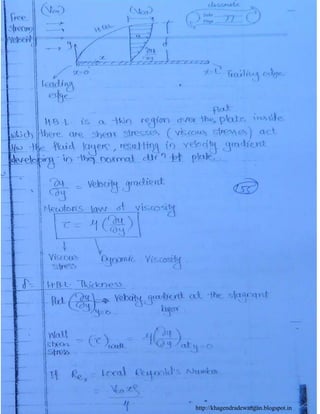 (V∞) (V∞) classmate
Date
Page 77
Free
Stream
Velocity
H.B.L.
y
x
∂u
∂y
x=0 x=L Trailing edge
Leading
edge
flat
H.B.L is a thin region over the plate inside
which there are shear stresses (viscous stresses) act
b/w the fluid layers, resulting in velocity gradient
developing in the normal dirn of plate.
∂u/∂y = Velocity gradient
155
Newton's law of viscosity
τ = μ (∂u/∂y)
Viscous Dynamic Viscosity
stress
H.B.L Thickness
(∂u/∂y)y=0 = velocity gradient at the stagnant
layer
Wall
shear
stress = (τ)wall = μ(∂u/∂y) at y=0
If Rex = Local Reynold's Number
= V∞xρ/μ
http://khagendradewangan.blogspot.in